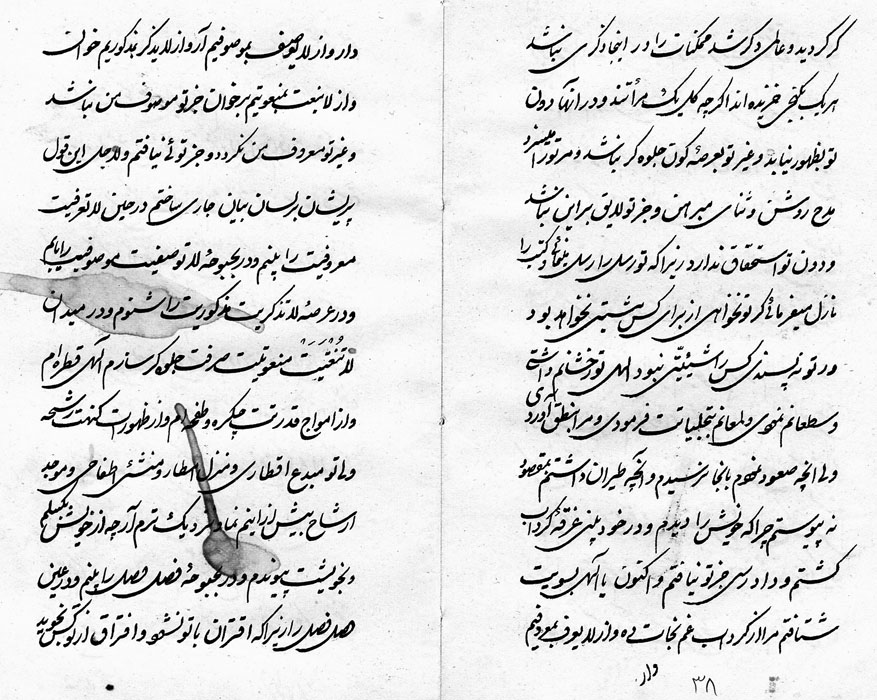 کر کردید و عالمی دکر شد ممکنات را در اینجا ذکری نباشد
هر یک بکنجی خزیده اند اکرچه کل یک مرآتند و در آنها دون
تو بظهور نیاید و غیر تو بعرصهٔ کون جلوه کر نباشد و مر تورا میسزد
مدح روشن و ثنای مبرهن و جز تو لایق بر این نباشد
و دون تو استحقاق ندارد زیرا که تو رسل را رسل نمائی و کتب را
نازل میفرمائی کر تو نخواهی از برای کس هستی نخواهد بود
ور تو نه پسندی کس را شیئیتی نبود الهی تو رخشانم داشتی
و سطعانم نمودی و لمعانم بتجلیات فرمودی و مرا بنطق آوردی
ولی آنچه صعود نمودم بآنجا نرسیدم و آنچه طیران داشتم بمقصود
نه پیوستم چرا که خویش را دیدم و در خود بینی غرقهٔ کرداب
کشتم و دادرسی جز تو نیافتم و اکنون یا الهی بسویت
شتافتم مرا از کرداب غم نجات ده و از لایوصف بمعروفیم
دار
۳۸
دار و از لایوصف بموصوفیم آر و از لایذکر بمذکوریم خوان
و از لاینعت بمنعوتیم بر خوان جز تو موصوف من نباشد
و غیر تو معروف من نکردد و جز توئی نیافتم ولاجل این قول
پریشان بر لسان بیان جاری ساختم در حین لاتعرفیت
معروفیت را بینم و در بحبوحهٔ لاتوصفیت موصوفیت یابم
و در عرصهٔ لاتذکریت مذکوریت را شنوم و در میدان
لاتنعتیت منعوتیت صرفت جلوه کر سازم الهی قطره ام
و از امواج قدرتت چکره و طفحه ام و از ظهورات کنهت رشحه
ولی تو مبدع اقطاری و منزل امطار و منشئ اطفاحی و موجد
ارشاح بیش از اینم نما و نزدیک ترم آر چه از خویش بکسلم
و بخویشت پیوندم و در بحبوحهٔ فصل وصل را بینم و در عین
وصل فصل را زیرا که اقتران با تو نشود و افتراق از تو کس نجوید